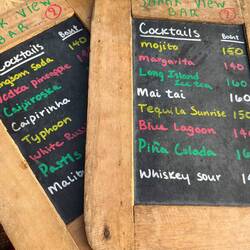 VIEW
BAR
Cocktails
Baht
140
Soda
Vodka pineapple
Caipiroska
Caipirinha
Typhoon
White Russ
Pastis
Malib
SHARK VIEW
BAR
Cocktails Baht
mojito 150
margarita 140
Long Island
Ice tea 160
Mai tai 160
Tequila Sunrise 150
Blue Lagoon 140
Piña Colada 160
Whiskey sour 14